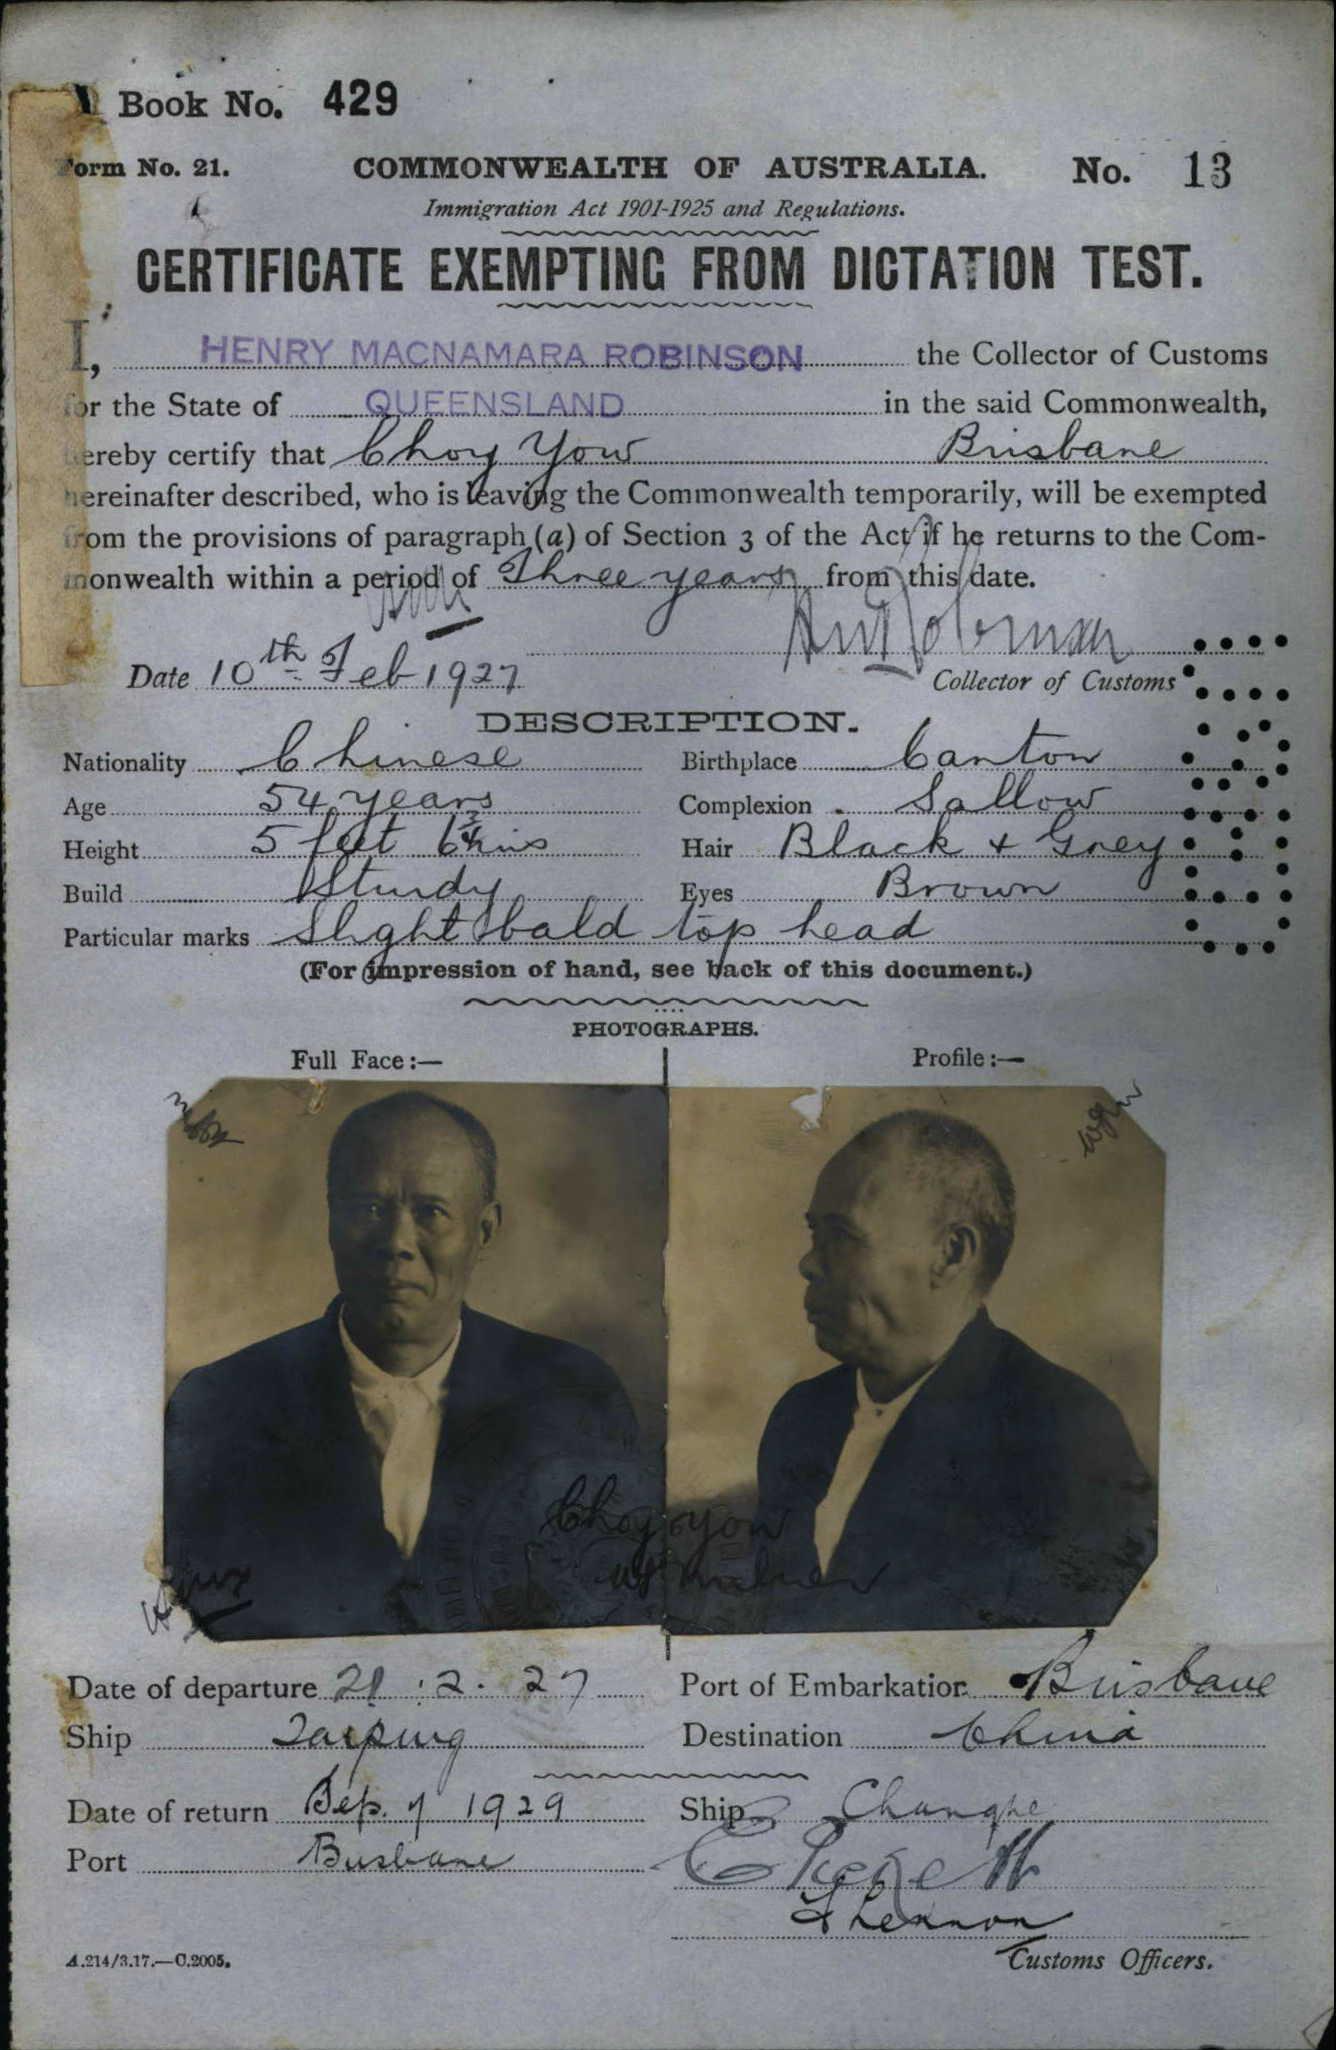 Book No. 429
Form No. 21. COMMONWEALTH OF AUSTRALIA. No. 13
Immigration Act 1901-1925 and Regulations.
CERTIFICATE EXEMPTING FROM DICTATION TEST.
I, HENRY MACNAMARA ROBINSON the Collector of Customs
for the State of QUEENSLAND in the said Commonwealth,
hereby certify that Choy Yow Brisbane
hereinafter described, who is leaving the Commonwealth temporarily, will be exempted
from the provisions of paragraph (a) of Section 3 of the Act if he returns to the Com-
monwealth within a period of Three years from this date.
Date 10th Feb 1927
Collector of Customs
DESCRIPTION.
Nationality Chinese Birthplace Canton
Age 54 years Complexion Sallow
Height 5 feet 6 3/4 ins Hair Black & Grey
Build Sturdy Eyes Brown
Particular marks Slight bald top head
(For impression of hand, see back of this document.)
PHOTOGRAPHS.
Full Face:— Profile:—
Choy Yow
Date of departure 21.2.27 Port of Embarkation Brisbane
Ship Taiping Destination China
Date of return Sep. 7 1929 Ship Changte
Port Brisbane
Lennon
A.214/3.17.—C.2005. Customs Officers.